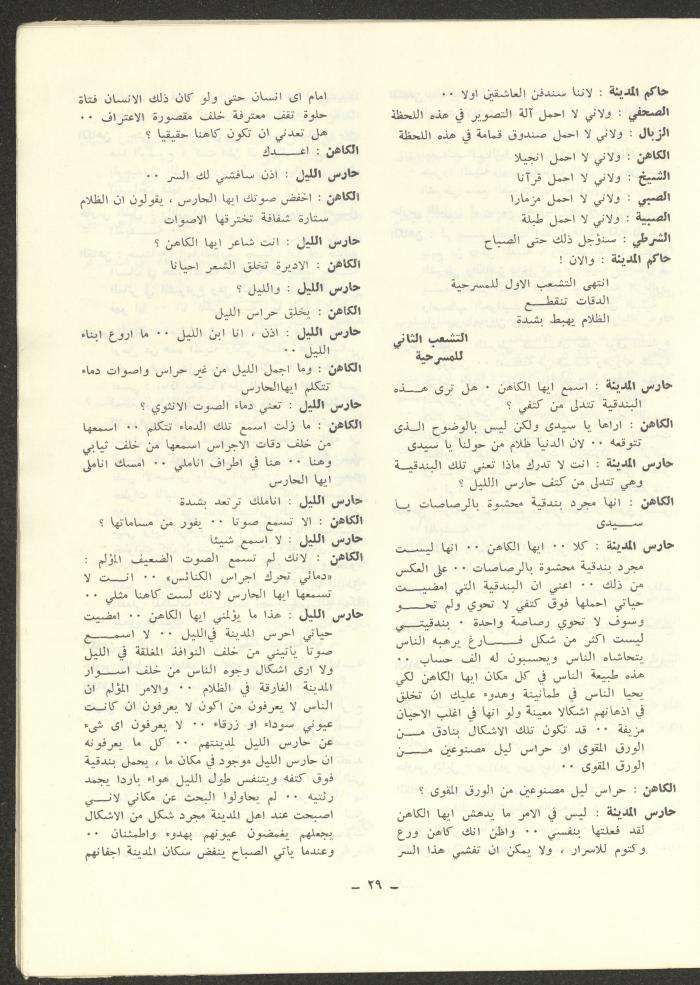 حاكم المدينة : لاننا سندفن العاشقين اولا ٠٠
الصحفي : ولاني لا احمل آلة التصوير في هذه اللحظة
الزبال : ولاني لا احمل صندوق قمامة في هذه اللحظة
الكاهن : ولاني لا احمل انجيلا
الشيخ : ولاني لا احمل قرآنا
الصبي : ولاني لا احمل مزمارا
الصبية : ولاني لا احمل طبلة
الشرطي : سنؤجل ذلك حتى الصباح
حاكم المدينة : والان !
انتهى التشعب الاول للمسرحية
الدقات تنقطــع
الظلام يهبط بشدة
التشعب الثاني
للمسرحية
حارس المدينة : اسمع ايها الكاهن ٠ هل ترى هـــذه
البندقية تتدلى من كتفي ؟
الكاهن : اراها يا سيدى ولكن ليس بالوضوح الــذى
تتوقعه ٠٠ لان الدنيا ظلام من حولنا يا سيدى
حارس المدينة : انت لا تدرك ماذا تعني تلك البندقيــة
وهي تتدلى من كتف حارس االليل ؟
الكاهن : انها مجرد بندقية محشوة بالرصاصات يــا
ســـيدى
حارس المدينة : كلا ٠٠ ايها الكاهن ٠٠ انها ليســت
مجرد بندقية محشوة بالرصاصات ٠٠ على العكس
من ذلك ٠٠ اعني ان البندقية التي امضيــت
حياتي احملها فوق كتفي لا تحوي ولم تحـــو
وسوف لا تحوي رصاصة واحدة ٠ بندقيتــي
ليست اكثر من شكل فـــارغ يرهبه الناس
يتحاشاه الناس ويحسبون له الف حساب ٠٠
هذه طبيعة الناس في كل مكان ايها الكاهن لكي
يحيا الناس في طمانينة وهدوء عليك ان تخلق
في اذهانهم اشكالا معينة ولو انها في اغلب الاحيان
مزيفة ٠٠ قد تكون تلك الاشكال بنادق مـــن
الورق المقوى او حراس ليل مصنوعين مـــن
الورق المقوى ٠٠
الكاهن : حراس ليل مصنوعين من الورق المقوى ؟
حارس المدينة : ليس في الامر ما يدهش ايها الكاهن
لقد فعلتها بنفسي ٠٠ واظن انك كاهن ورع
وكتوم للاسرار ، ولا يمكن ان تفشي هذا السر
امام اى انسان حتى ولو كان ذلك الانسان فتاة
حلوة تقف معترفة خلف مقصورة الاعتراف ٠٠
هل تعدني ان تكون كاهنا حقيقيا ؟
الكاهن : اعـــدك
حارس الليل : اذن سافشي لك السر ٠٠
الكاهن : اخفض صوتك ايها الحارس ، يقولون ان الظلام
ستارة شفافة تخترقها الاصوات
حارس الليل : انت شاعر ايها الكاهن ؟
الكاهن : الاديرة تخلق الشعر احيانا
حارس الليل : والليل ؟
الكاهن : يخلق حراس الليل
حارس الليل : اذن ، انا ابن الليل ٠٠ ما اروع ابناء
الليل ٠٠
الكاهن : وما اجمل الليل من غير حراس واصوات دماء
تتكلم ايهاالحارس
حارس الليل : تعني دماء الصوت الانثوي ؟
الكاهن : ما زلت اسمع تلك الدماء تتكلم ٠٠ اسمعها
من خلف دقات الاجراس اسمعها من خلف ثيابي
وهنا ٠٠ هنا في اطراف اناملي ٠٠ امسك اناملى
ايها الحارس
حارس الليل : اناملك ترتعد بشدة
الكاهن : الا تسمع صوتا ٠٠ يفور من مساماتها ؟
حارس الليل : لا اسمع شيئا
الكاهن : لانك لم تسمع الصوت الضعيف المؤلم :
«دمائي تحرك اجراس الكنائس» ٠٠ انـــت لا
تسمعها ايها الحارس لانك لست كاهنا مثلي ٠٠
حارس الليل : هذا ما يؤلمني ايها الكاهن ٠٠ امضيت
حياتي احرس المدينة في‌الليل ٠٠ لا اسمــــع
صوتا يأتيني من خلف النوافذ المغلقة في الليل
ولا ارى اشكال وجوه الناس من خلف اســـوار
المدينة الغارقة في الظلام ٠٠ والامر المؤلم ان
الناس لا يعرفون من اكون لا يعرفون ان كانــت
عيوني سوداء او زرقاء ٠٠ لا يعرفون اى شىء
عن حارس الليل لمدينتهم ٠٠ كل ما يعرفونه
ان حارس الليل موجود في مكان ما ، يحمل بندقية
فوق كتفه ويتنفس طول الليل هواء باردا يجمد
رئتيه ٠٠ لم يحاولوا البحث عن مكاني لانـــي
اصبحت عند اهل المدينة مجرد شكل من الاشكال
يجعلهم يغمضون عيونهم بهدوء واطمئنان ٠٠
وعندما يأتي الصباح ينفض سكان المدينة اجفانهم
ــ ٢٩ ــ